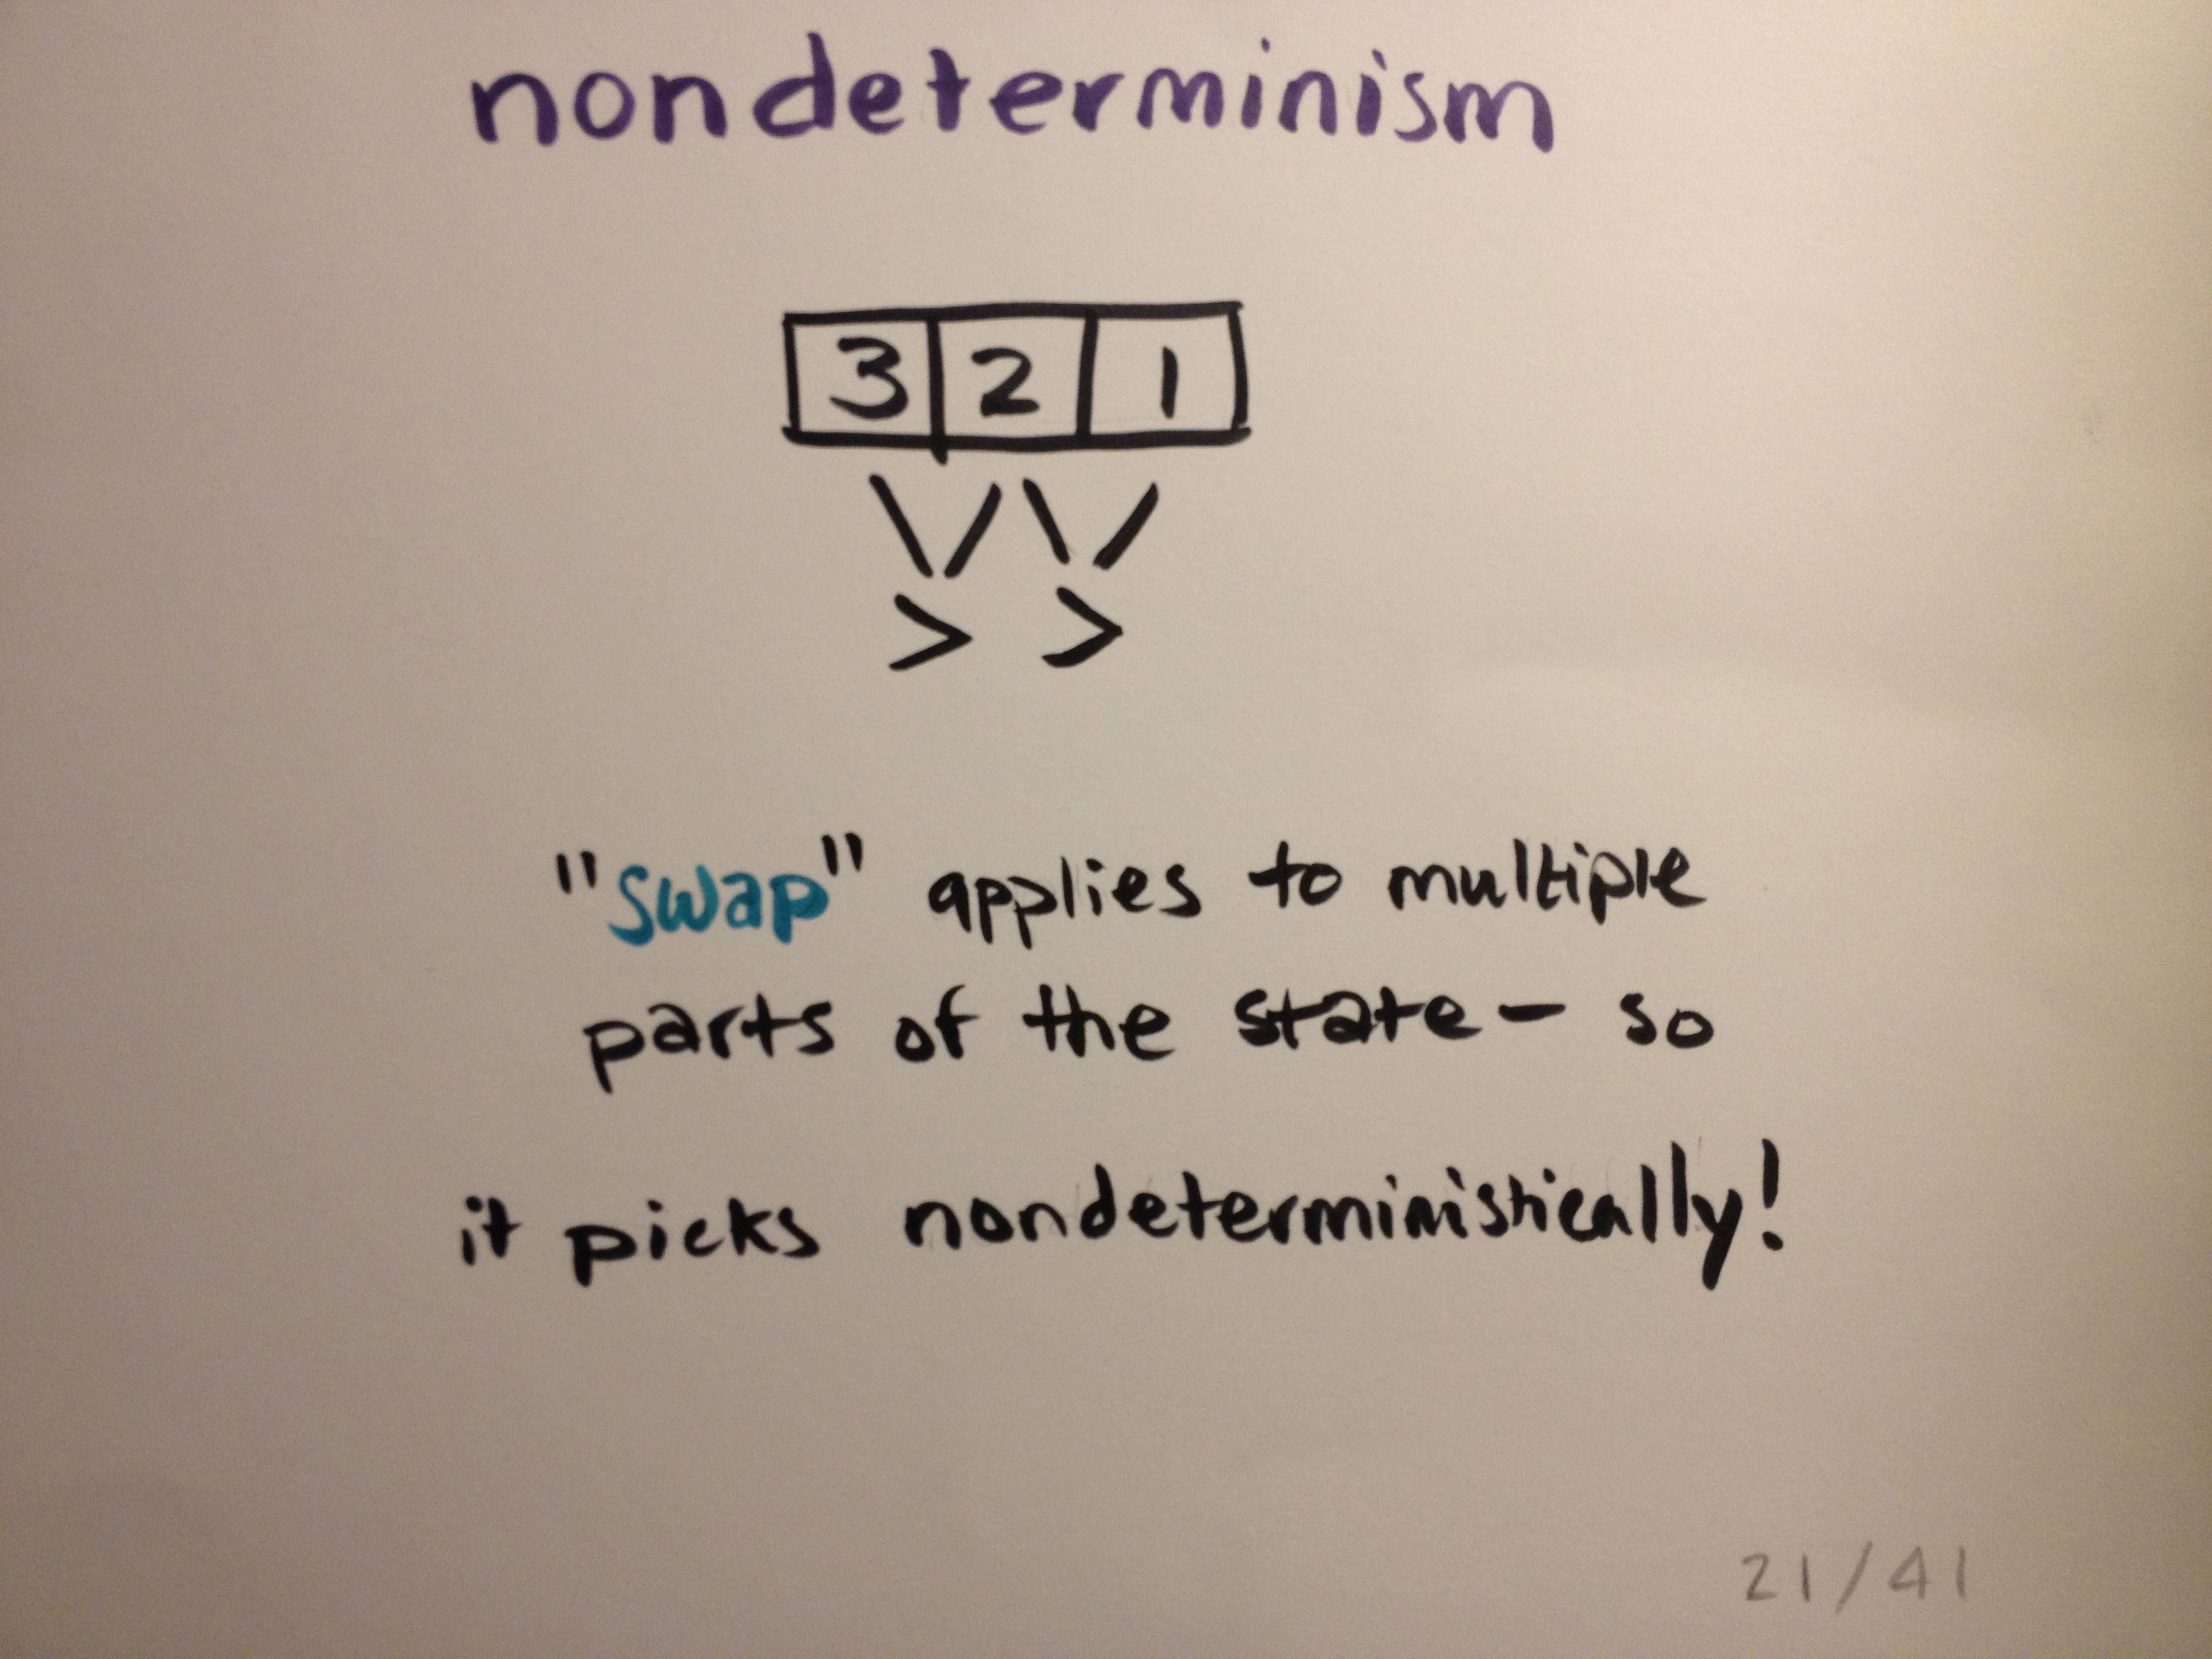 nondeterminism
3 2 1
> >
"swap" applies to multiple
parts of the state - so
it picks nondeterministically!
21/41